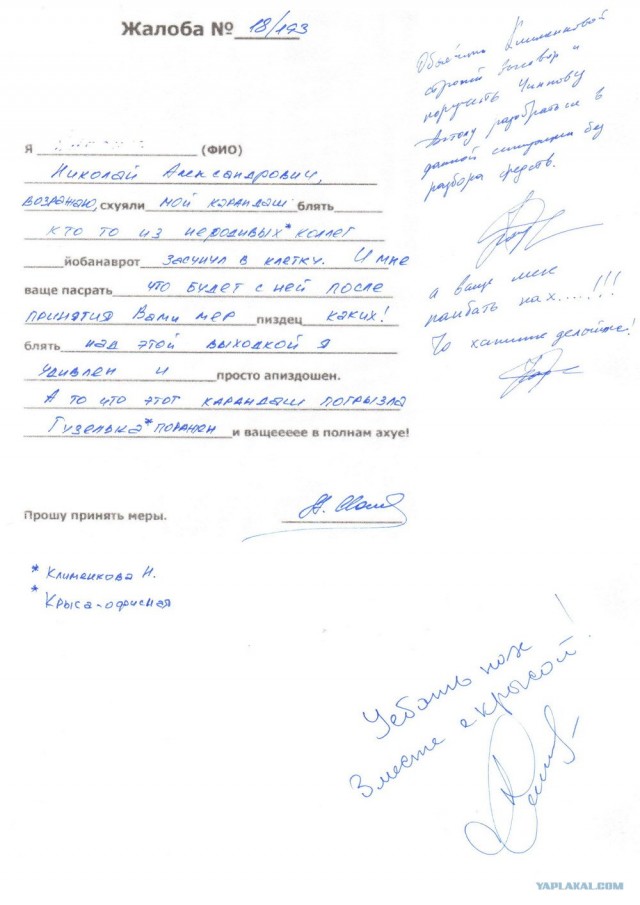 Жалоба № 18/193
Я (ФИО)
Николай Александрович,
возражаю, схуяли мой карандаш блять
кто то из неродивых* коллег
йобанаврот засунул в клетку. И мне
ваще пасрать что будет с ней после
принятия Вами мер пиздец каких!
блять над этой выходкой я
удивлен и просто апиздошен.
А то что этот карандаш погрызла
Гузелька* поражен и ващеееее в полнам ахуе!
Прошу принять меры.
* Клименкова Н.
* Крыса-офисная
Объявить Клименковой
строгий выговор и
поручить
разобраться в
данной ситуации без
разбора средств.
а ваще мне
паибать нах....!!!
Чо хатите делойте!
Уебать нах
Вместе с крысой!
YAPLAKAL.COM